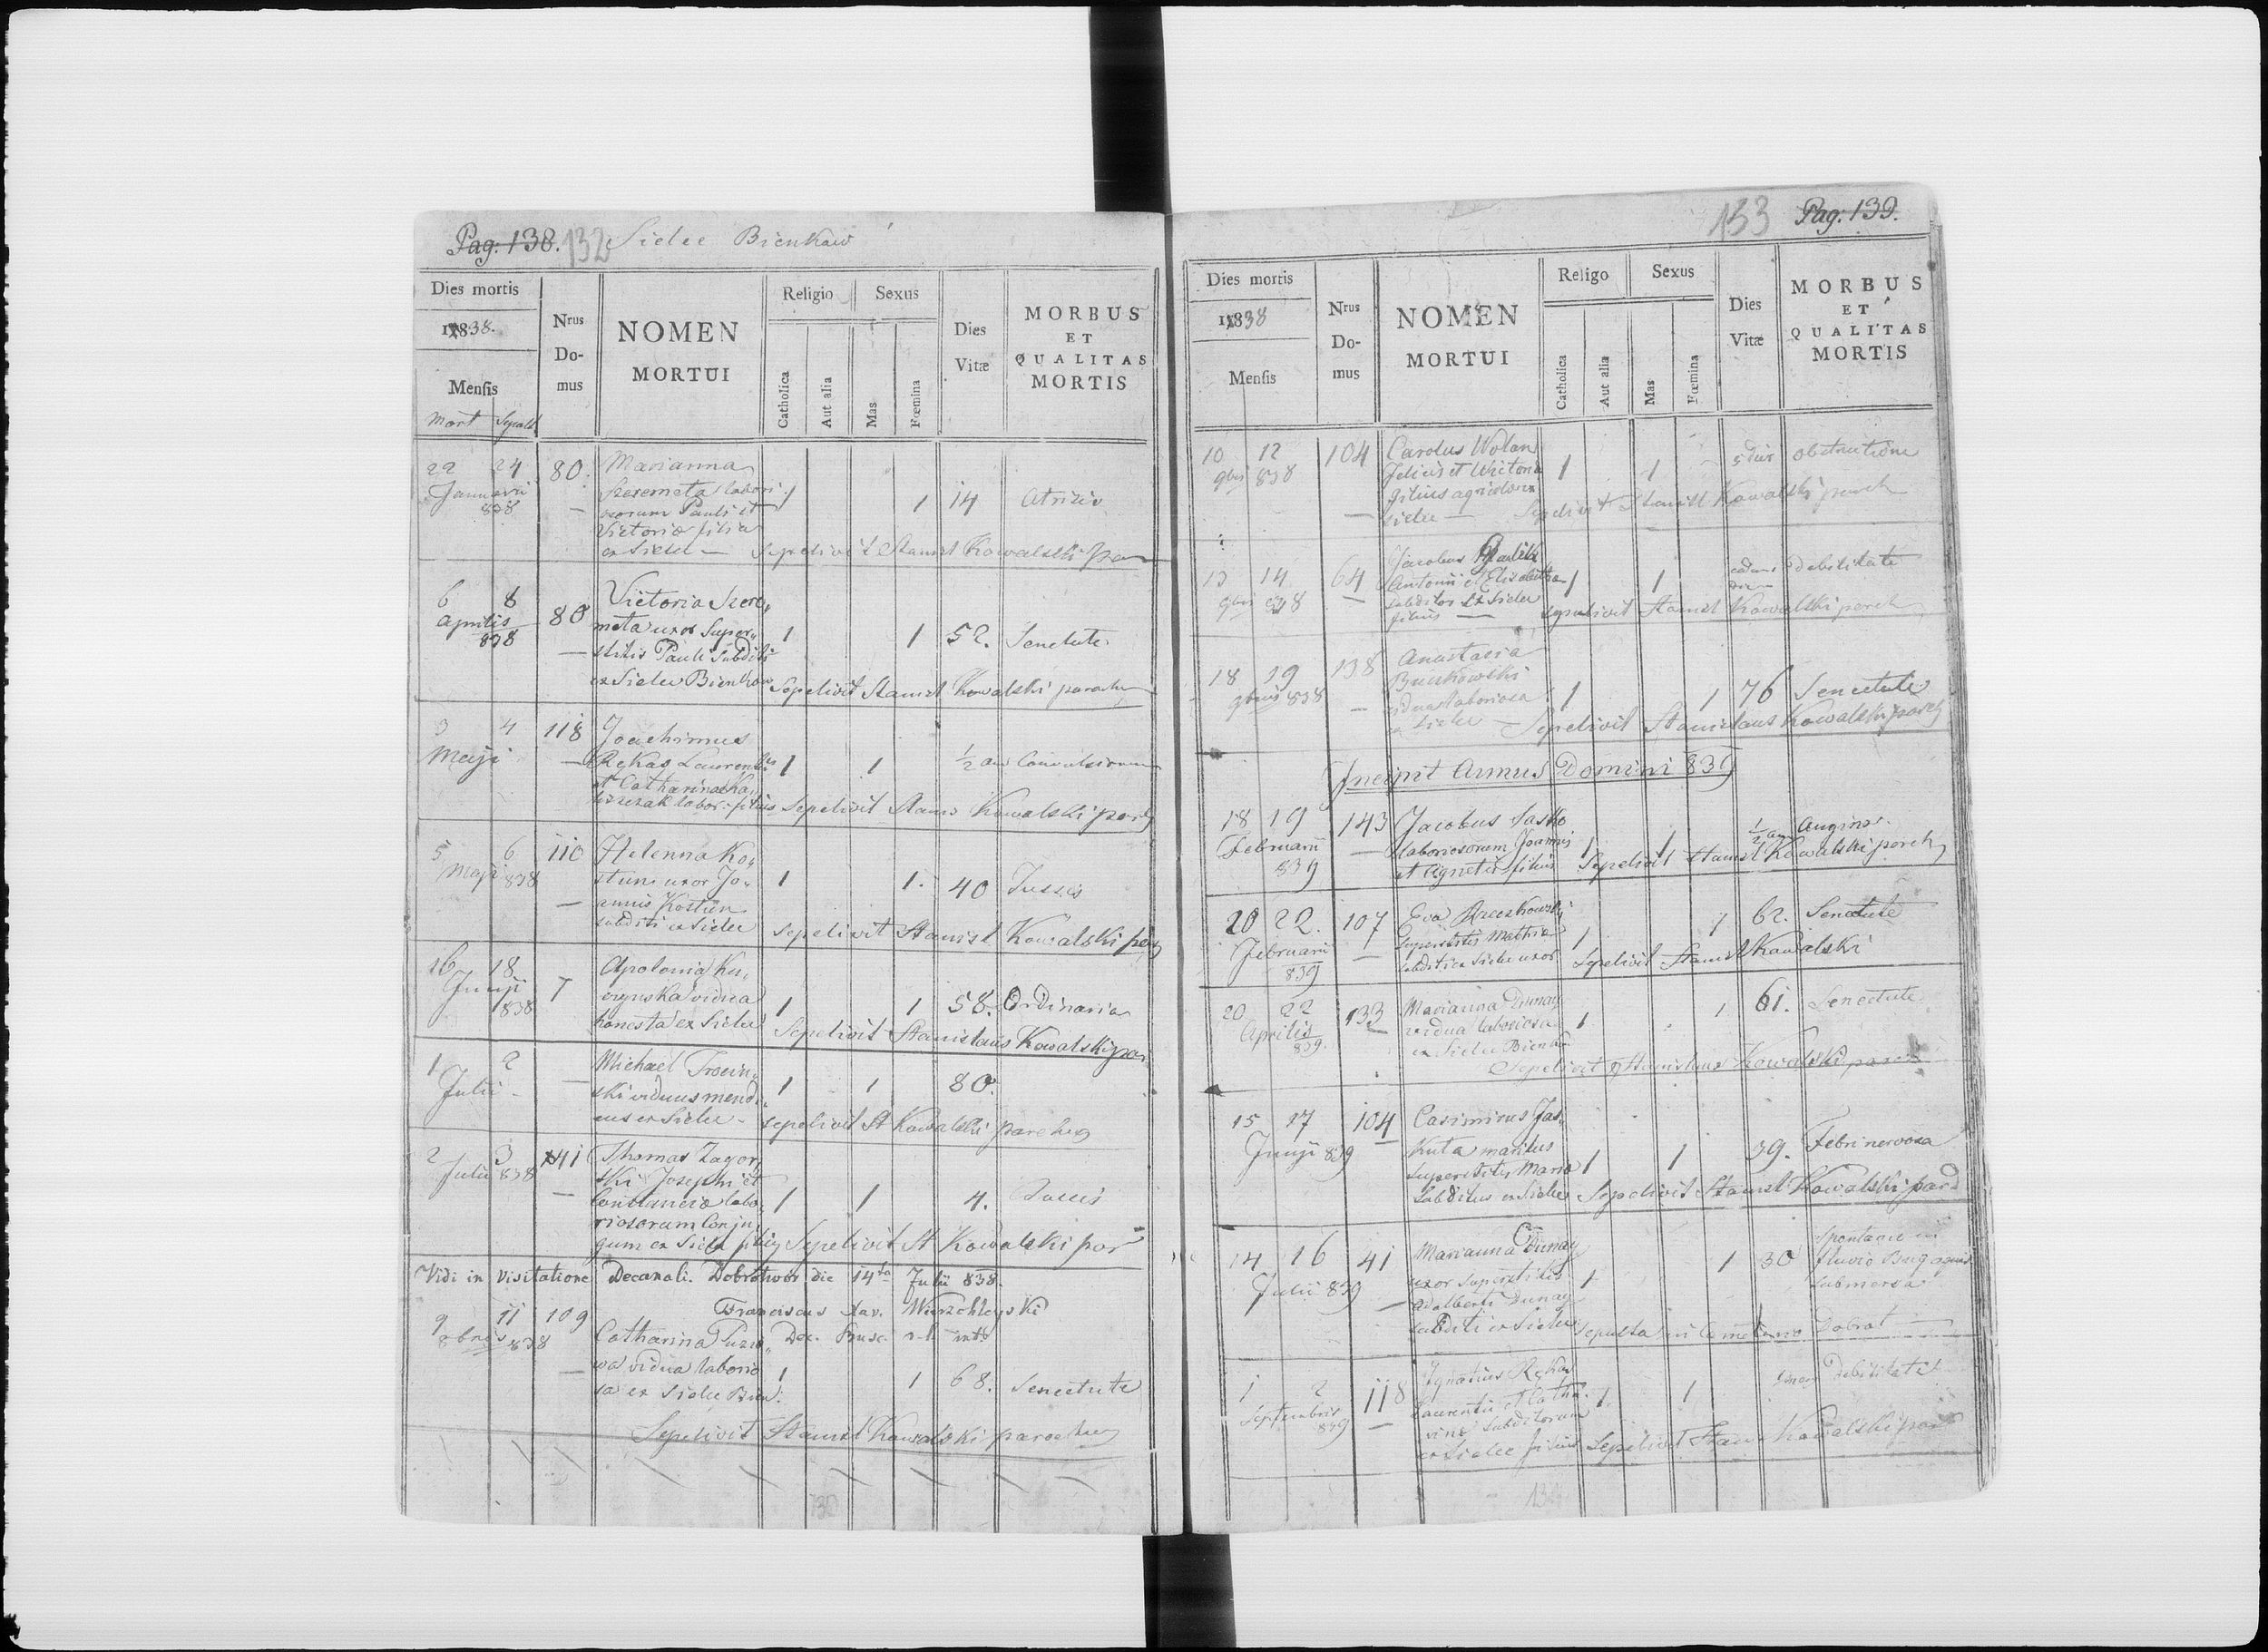 Pag: 138. 132 Sielec Bienkow
Dies mortis
1838.
Mensis
Mort Sepult
Nrus
Do-
mus
NOMEN
MORTUI
Religio
Catholica
Aut alia
Sexus
Mas
Fœmina
Dies
Vitæ
MORBUS
ET
QUALITAS
MORTIS
22 24 80. Marianna
Januarii Szeremeta labori 1 1 14
838 osorum Pauli et
Victoria filia
ex Sielec — Sepelivit Stanisl Kowalski par
6 8 80 Victoria Szere„
Aprilis meta uxor Super„ 1 1 52. Senectute
838 stitis Pauli Subditi
ex Sielec Bienkow Sepelivit Stanisl Kowalski paroch
3 4 118 Joachimus
Maji Rekas Laurentii 1 1 ½ an Convulsionum
et Catharina
labor: filius Sepelivit Stanis Kowalski paroch
5 6 110 Helenna Ko„
Maji 838 stun uxor Jo„ 1 1. 40 Tussis
annis Kostun
subditi ex Sielec Sepelivit Stanisl Kowalski par
16 18 7 Apolonia Ku„
Junji vidua 1 1 58. Ordinaria
838 honesta ex Sielec Sepelivit Stanislaus Kowalski par
1 2 Michael
Julii — ski viduus mendi„ 1 1 80.
cus ex Sielec — sepelivit St Kowalski parochus
2 3 141 Thomas Zagor„
Julii 838 ski Josephi et
Constancia labo„ 1 1 4.
riosorum Conju„
gum ex Sielec filius Sepelivit St Kowalski par
Vidi in Visitatione Decanali. Dobrotwor die 14ta Julii 838.
Franciscus Xav.
9 11 109 Catharina
8bris 838 wa vidua laborio 1 1 68. Senectute
sa ex Sielec Bien:
Sepelivit Stanisl Kowalski parochus
153 Pag: 139.
Dies mortis
1838
Mensis
Nrus
Do-
mus
NOMEN
MORTUI
Religo
Catholica
Aut alia
Sexus
Mas
Fœmina
Dies
Vitæ
MORBUS
ET
QUALITAS
MORTIS
10 12 104 Carolus Wolan
9bris 838 Felicis et Victoria 1 1 5 dies obstructione
filius agricolarum
Sielec — Sepelivit Stanisl Kowalski paroch
13 14 64 Jacobus
9bris 838 Antonii et Elisabetha 1 1 debilitate
subditor ex Sielec
filius — sepelivit Stanisl Kowalski paroch
18 19 138 Anastasia
9bris 838 vidua laboriosa 1 1 76 Senectute
ex Sielec — Sepelivit Stanislaus Kowalski paroch
Incipit Annus Domini 839
18 19 143 Jacobus Sasko
Februarii laboriosorum Joannis 1 1 ½ an Angina
839 et Agnetis filius Sepelivit Stanisl Kowalski paroch
20 22. 107 Eva
Februarii Superstitis Mathia 1 1 62. Senectute
839 subditi ex Sielec uxor Sepelivit Stanisl Kowalski
20 22 133 Marianna Dunay
Aprilis vidua laboriosa 1 1 61. Senectute
839. ex Sielec Bienkow
Sepelivit Stanislaus Kowalski paroch
15 17 104 Casimirus Jas„
Junji 839 kuta maritus
superstitis Maria 1 1 39. Febri nervosa
Subditus ex Sielec Sepelivit Stanisl Kowalski paro
14 16 41 Marianna Dunay 1 30 Spontanee in
Julii 839 uxor superstitis 1 fluvio Bug aquis
Adalberti Dunay submersa
subditi ex Sielec sepulta in Cemeterio Dobrot
1 2 118 Ignatius Rekas
Septembris Laurentii et Catha„ 1 1 debilitate
839 rina subditorum
ex Sielec filius Sepelivit Stanis Kowalski paro